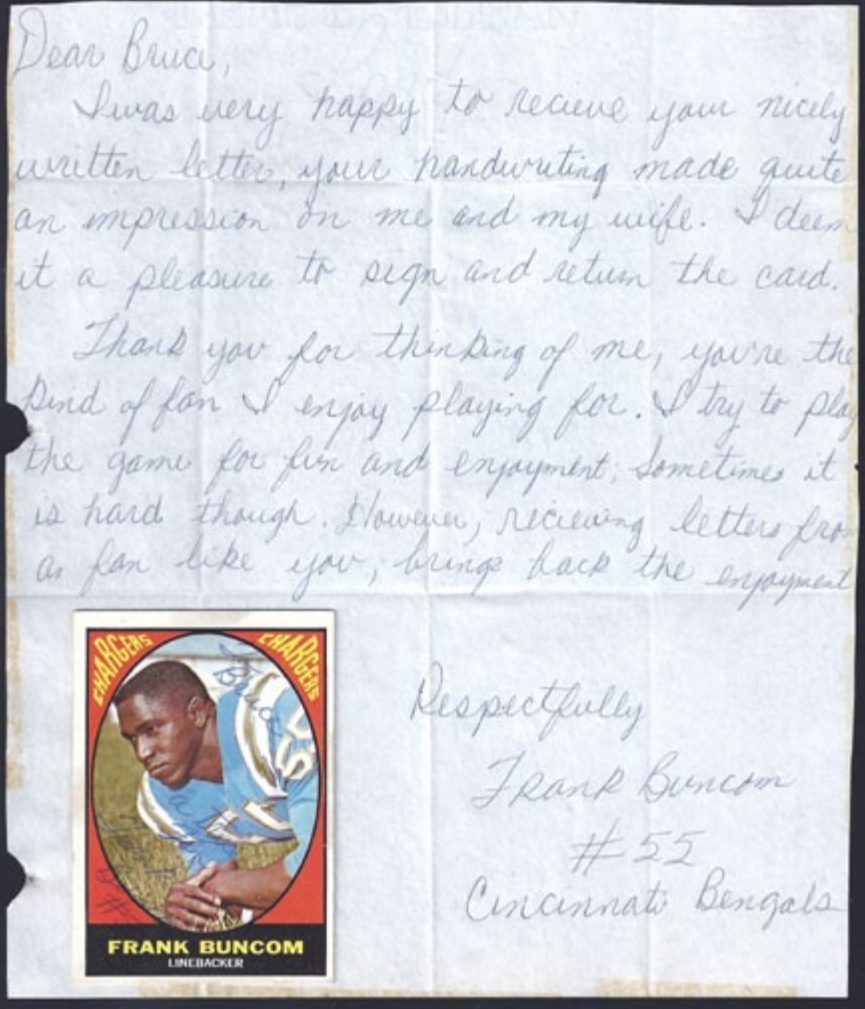 Dear Bruce,
I was very happy to recieve your nicely
written letter, your handwriting made quite
an impression on me and my wife. I deem
it a pleasure to sign and return the card.
Thank you for thinking of me, you're the
kind of fan I enjoy playing for. I try to play
the game for fun and enjoyment; Sometimes it
is hard though. However, recieving letters fro
a fan like you, brings back the enjoyment
Respectfully
Frank Buncom
#55
Cincinnati Bengals
CHARGERS CHARGERS
To Bruce
55
FRANK BUNCOM
LINEBACKER